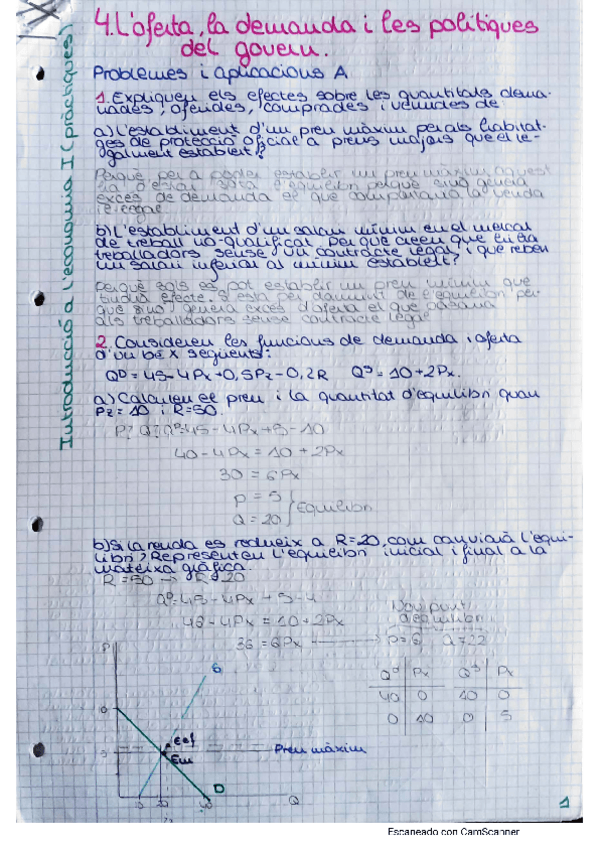 4. L'oferta, la demanda i les polítiques
del govern.
Introducció a l'economia I (pràctiques)
Problemes i aplicacions A
1. Expliqueu els efectes sobre les quantitats dema-
nades, oferides, comprades i venudes de
a) l'establiment d'un preu màxim per als habitat-
ges de protecció oficial a preus majors que el le-
galment establert?
Perquè per a poder establir un preu màxim aquest
ha d'estar sota l'equilibri perquè sinó genera
excés de demanda el que comportaria la venda
b) L'establiment d'un salari mínim en el mercat
de treball no-qualificat. Per què creeu que hi ha
treballadors sense un contracte legal i que reben
un salari inferior al mínim establert?
Perquè sols es pot establir un preu mínim que
tindrà efecte si està per damunt de l'equilibri per
què sinó genera excés d'oferta el que passaria
als treballadors sense contracte legal
2. Considereu les funcions de demanda i oferta
d'un bé X següents:
QD = 45 - 4Px + 0,5Pz - 0,2R QS = 10 + 2Px.
a) Calculeu el preu i la quantitat d'equilibri quan
Pz = 10 i R = 50.
P? Q? QD = 45 - 4Px + 5 - 10
40 - 4Px = 10 + 2Px
30 = 6Px
P = 5
Q = 20 } Equilibri
b) Si la renda es redueix a R = 20, com canviarà l'equi-
libri? Representeu l'equilibri inicial i final a la
mateixa gràfica.
R = 50 → R = 20
QD = 45 - 4Px + 5 - 4
46 - 4Px = 10 + 2Px
36 = 6Px → P = 6 Q = 22
Nou punt
d'equilibri
QD Px QS Px
40 0 10 0
0 10 0 5
P
O
Em
Preu màxim
D
Q
1
Escaneado con CamScanner